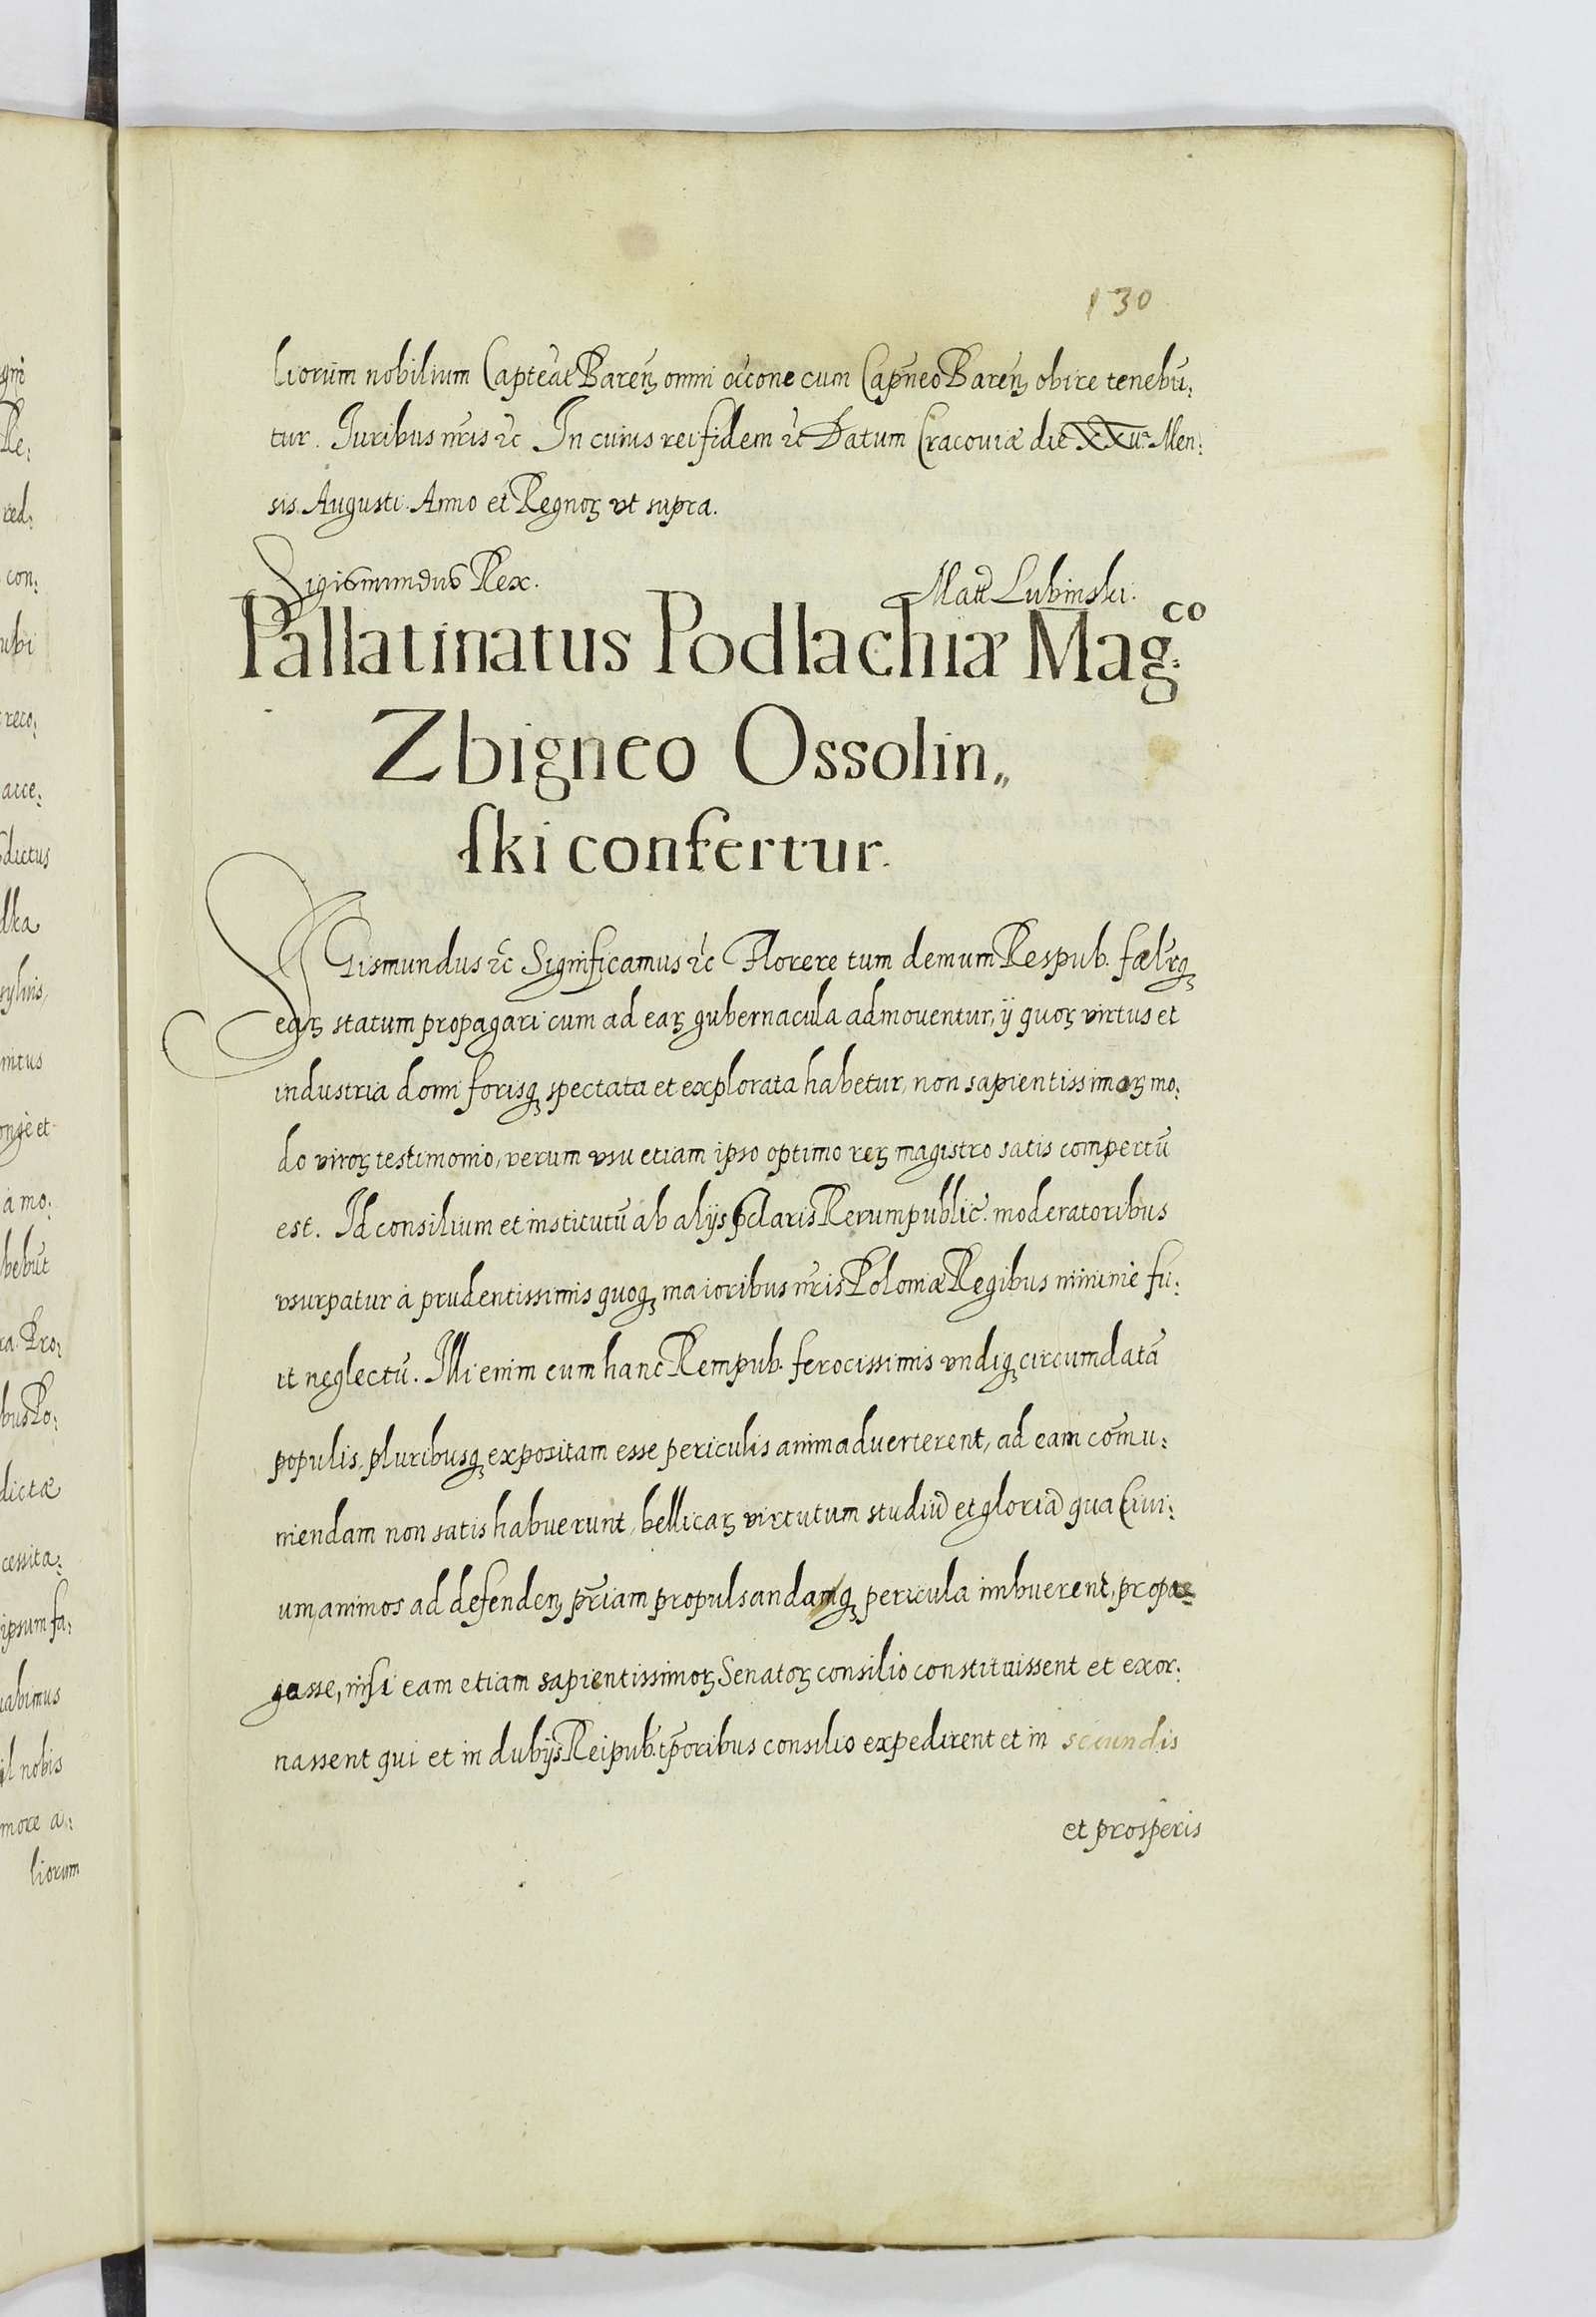 130
liorum nobilium Captēāt Bareñ omni occōne cum Capñeo Bareñ obire tenebū:
tur. Juribus nr̄is ꝛc̄ In cuius rei fidem ꝛc̄ Datum Cracouiæ die XXua Men:
sis Augusti. Anno et Regnoꝝ vt supra.
Sigismundus Rex.
Matt Lubinski.
Pallatinatus Podlachiæ Mag:co
Zbigneo Ossolin„
ſki confertur.
SIGismundus ꝛc̄ Significamus ꝛc̄ Florere tum demum Respub. fælrꝗ
eaꝝ statum propagari cum ad eaꝝ gubernacula admouentur, ij quoꝝ virtus et
industria domi forisꝗ spectata et explorata habetur, non sapientissimoꝝ mo:
do viroꝝ testimonio, verum vsu etiam ipso optimo reꝝ magistro satis compertū
est. Id consilium et institutū ab alijs p̄claris Rerumpublic. moderatoribus
vsurpatur à prudentissimis quoꝗ maioribus nr̄is Poloniæ Regibus minimè fu:
it neglectū. Illi enim cum hanc Rempub. ferocissimis vndiꝗ circumdatā
populis, pluribusꝗ expositam esse periculis animaduerterent, ad eam com̄u:
niendam non satis habuerunt, bellicaꝝ virtutum studiū et gloriā qua Ciui:
um animos ad defendeñ pr̄iam propulsandamꝗ pericula imbuerent, propa:
gasse, nisi eam etiam sapientissimoꝝ Senatoꝝ consilio constituissent et exor:
nassent qui et in dubijs Reipub. tp̄oribus consilio expedirent et in secundis
et prosperis